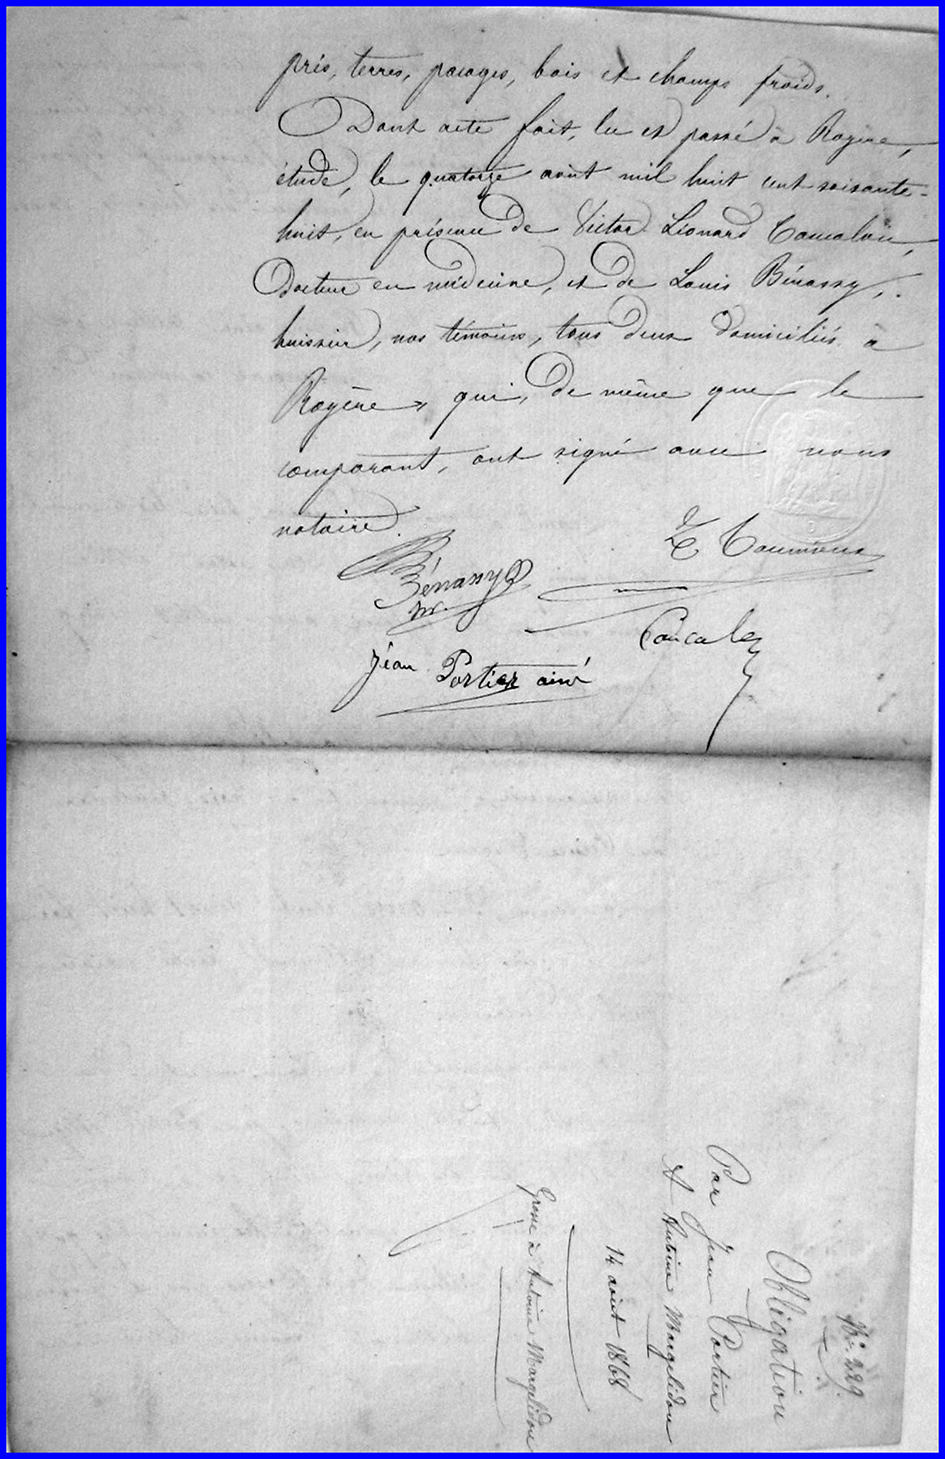 prés, terres, pacages, bois et champs froids.
Dont acte fait, lu et passé à Royère,
étude, le quatorze août mil huit cent soixante-
huit, en présence de Victor Léonard Coucalon,
Docteur en médecine, et de Louis Bénassy,
huissier, nos témoins, tous deux domiciliés à
Royère, qui, de même que le
comparant, ont signé avec nous
notaire.
Bénassy
Jean Portier ainé
N° 229
Obligation
Par Jean Portier
A Antoine Margelidon
14 août 1868
Grosse à Antoine Margelidon